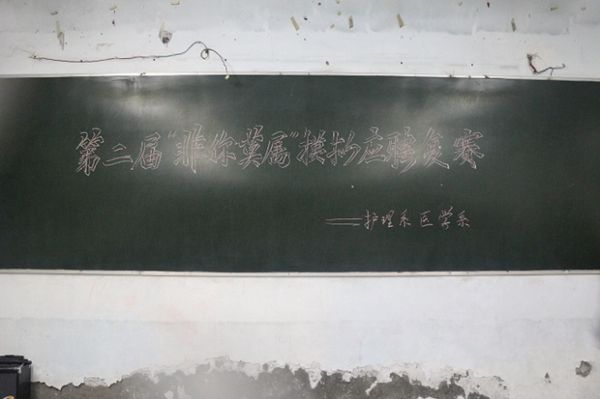 第二届“非你莫属”模拟应聘复赛
——护理系 医学系